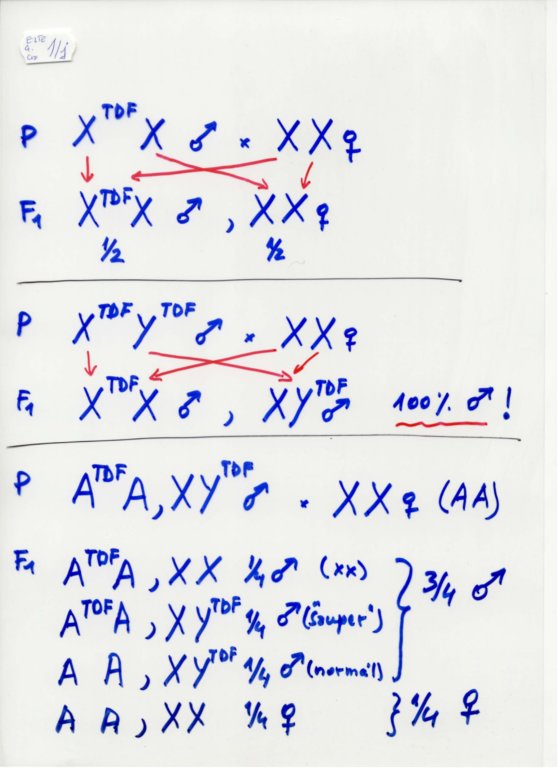 1/j
P X^TDF X ♂ × XX ♀
F1 X^TDF X ♂ , XX ♀
1/2 1/2
P X^TDF Y^TDF ♂ × XX ♀
F1 X^TDF X ♂ , XY^TDF ♂ 100% ♂ !
P A^TDF A, XY^TDF ♂ × XX ♀ (AA)
F1 A^TDF A , XX 1/4 ♂ (xx)
A^TDF A , XY^TDF 1/4 ♂ ("souper")
} 3/4 ♂
A A , XY^TDF 1/4 ♂ (normál)
A A , XX 1/4 ♀ } 1/4 ♀